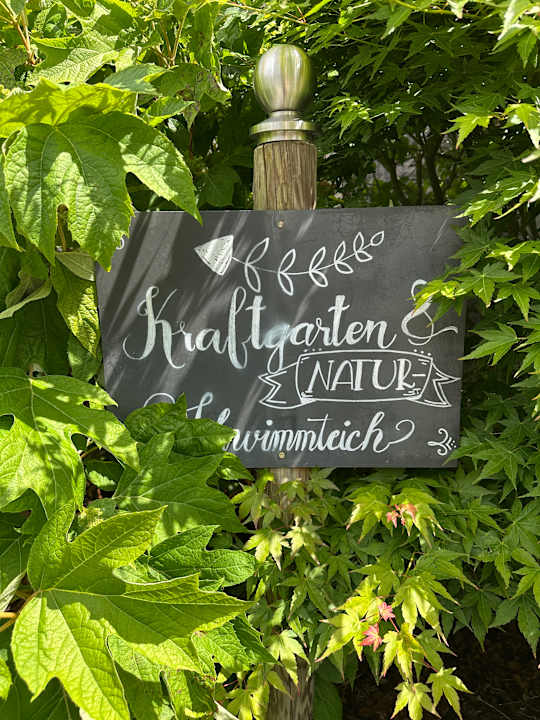 Kraftgarten &
NATUR-
Schwimmteich